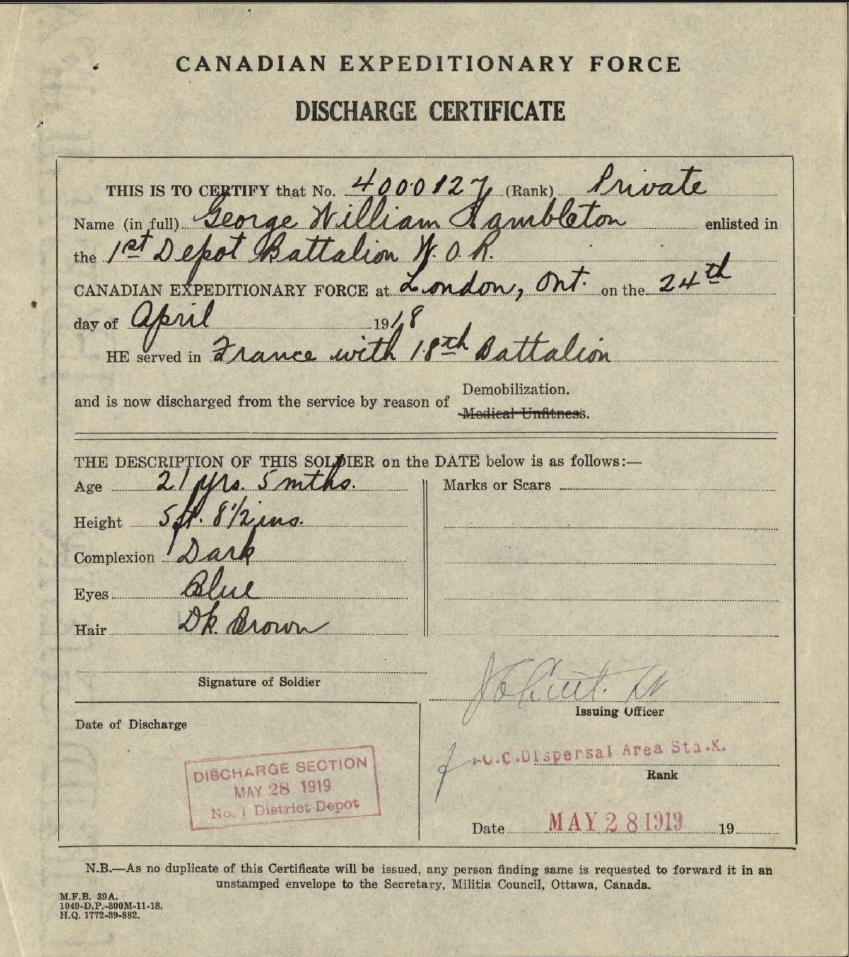 CANADIAN EXPEDITIONARY FORCE
DISCHARGE CERTIFICATE
THIS IS TO CERTIFY that No. 4000127 (Rank) Private
Name (in full) George William Hambleton enlisted in
the 1st Depot Battalion W.O.R.
CANADIAN EXPEDITIONARY FORCE at London, Ont. on the 24th
day of April 1918
HE served in France with 18th Battalion
and is now discharged from the service by reason of Demobilization.
Medical Unfitness.
THE DESCRIPTION OF THIS SOLDIER on the DATE below is as follows:—
Age 21 yrs. 5 mths.
Height 5 ft. 8 1/2 ins.
Complexion Dark
Eyes Blue
Hair Dk. Brown
Marks or Scars
Signature of Soldier
Issuing Officer
Date of Discharge
DISCHARGE SECTION
MAY 28 1919
No. 1 District Depot
for O.C. Dispersal Area Sta. K.
Rank
Date MAY 28 1919 19
N.B.—As no duplicate of this Certificate will be issued, any person finding same is requested to forward it in an
unstamped envelope to the Secretary, Militia Council, Ottawa, Canada.
M.F.B. 39A.
1049-D.P.-300M-11-18.
H.Q. 1772-39-882.